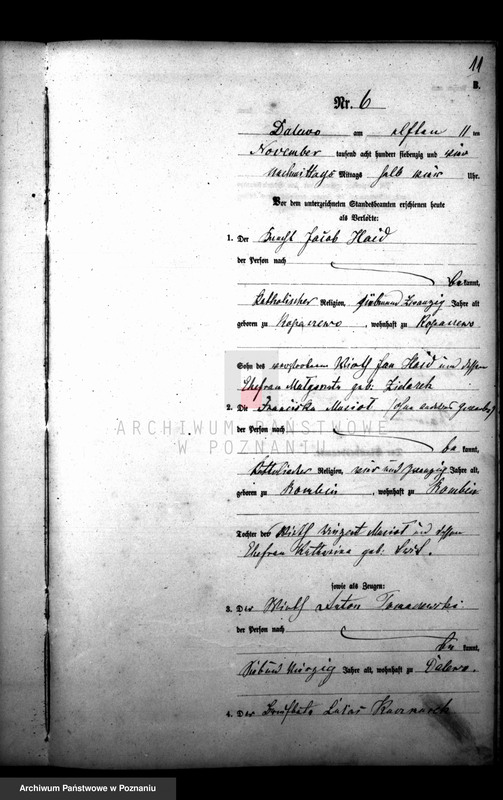 11
B.
Nr. 6
Dalewo am elften 11 ten
November tausend acht hundert siebenzig und vier
nachmittags Mittags halb vier Uhr.
Vor dem unterzeichneten Standesbeamten erschienen heute
als Verlobte:
1. Der Knecht Jacob Haid
der Person nach
be kannt,
katholischer Religion, siebenundzwanzig Jahre alt
geboren zu Kopaszewo, wohnhaft zu Kopaszewo
Sohn des verstorbenen Wirth Jan Haid und dessen
Ehefrau Malgorzata geb:
2. Die Franciska (ohne anderen
der Person nach
be kannt,
katholischer Religion, vier und zwanzig Jahre alt,
geboren zu, wohnhaft zu
Tochter des Wirth Vincent und dessen
Ehefrau Katharina geb:
sowie als Zeugen:
3. Der Wirth Anton Tomaszewski
der Person nach
be kannt,
Jahre alt, wohnhaft zu Dalewo.
4. Der Lucas Kaczmarek
ARCHIWUM PAŃSTWOWE
W POZNANIU
Archiwum Państwowe w Poznaniu